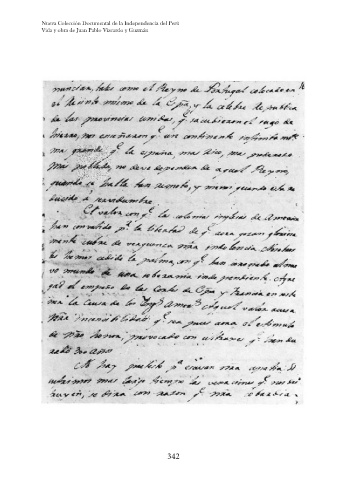 Nueva Colección Documental de la Independencia del Perú
Vida y obra de Juan Pablo Viscardo y Guzmán
nuncian, tales como el Reyno de Portugal colocado en
el recinto mismo de la Espa, y la celebre republica
de las provincias unidas, q. sacudieron el yugo de
hierro, nos enseñaron q. un continente infinitamte
mas grande q. la españa, mas rico, mas poderoso
mas poblado, no debe depender de aquel Reyno,
quando se halla tan remoto, y menos quando esta re
ducido à servidumbre.
El valor con q. las colonias inglesas de America
han convatido pr. la libertad de q. ahora gozan gloriosa
mente cubre de verguenza nra indolencia. Nosotros
les hemos cedido la palma, con q. han coronado al nue
vo mundo de una soberania independiente. Agre
gad el empeño de las Cortes de Espa y Francia en soste
ner la causa de los Ings. Amers. Aquel valor acusa
nra incensibilidad
de nro honor, provocado con ultrages q.
300 años
No hay pretesto pa
mas largo tiempo las vexaciones q. nos des
truyen, se dira con razon q. nra cobardia
342